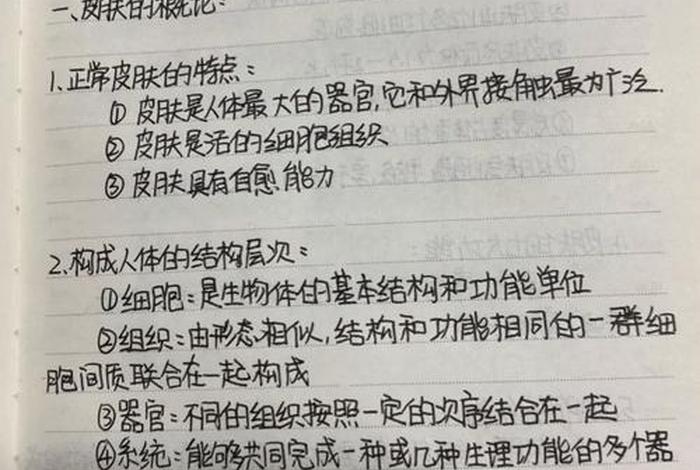 一、皮肤的概论：
1.正常皮肤的特点：
① 皮肤是人体最大的器官,它和外界接触最为广泛.
② 皮肤是活的细胞组织
③ 皮肤具有自愈能力
2.构成人体的结构层次：
①细胞：是生物体的基本结构和功能单位
②组织：由形态相似,结构和功能相同的一群细
胞间质联合在一起构成
③器官：不同的组织按照一定的次序结合在一起
④系统：能够共同完成一种或几种生理功能的多个器